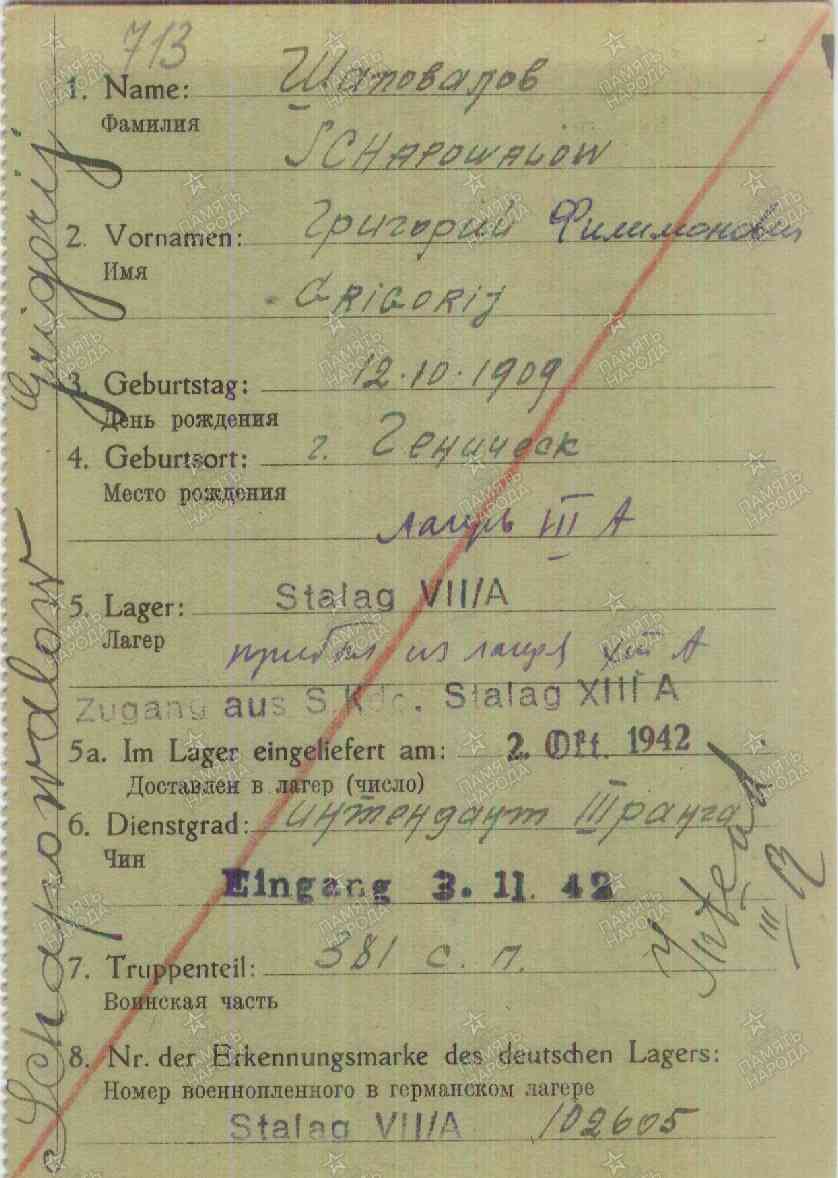 713
1. Name: Шаповалов
Фамилия
SCHAPOWALOW
2. Vornamen: Григорий Филимонович
Имя
GRIGORIJ
3. Geburtstag: 12.10.1909
День рождения
4. Geburtsort: г. Геническ
Место рождения
лагерь III А
5. Lager: Stalag VII/A
Лагер
прибыл из лагеря XIII А
Zugang aus S.Kdo. Stalag XIII A
5a. Im Lager eingeliefert am: 2. Okt. 1942
Доставлен в лагер (число)
6. Dienstgrad: интендант III ранга
Чин
Eingang 3. 11. 42
Intend.
III R
7. Truppenteil: 381 с. п.
Воинская часть
8. Nr. der Erkennungsmarke des deutschen Lagers:
Номер военнопленного в германском лагере
Stalag VII/A 102605
Schapowalow Grigorij
ПАМЯТЬ НАРОДА